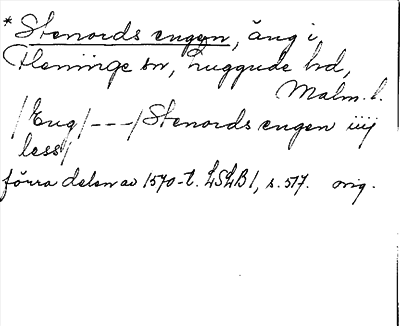 * Stenords engen, äng i,
Fleninge sn, Luggude hd,
Malm. l.
/Eng/ - - - / Stenords engen iiij
less/
förra delen av 1570-t. LSLB 1, s. 517. orig.